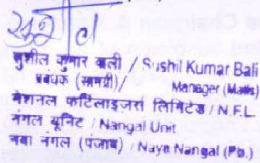 सुशील
सुशील कुमार बाली / Sushil Kumar Bali
प्रबंधक (सामग्री)/ Manager (Matls)
नेशनल फर्टिलाइजर्स लिमिटेड / N.F.L.
नंगल यूनिट / Nangal Unit
नया नंगल (पंजाब) / Naya Nangal (Pb.)